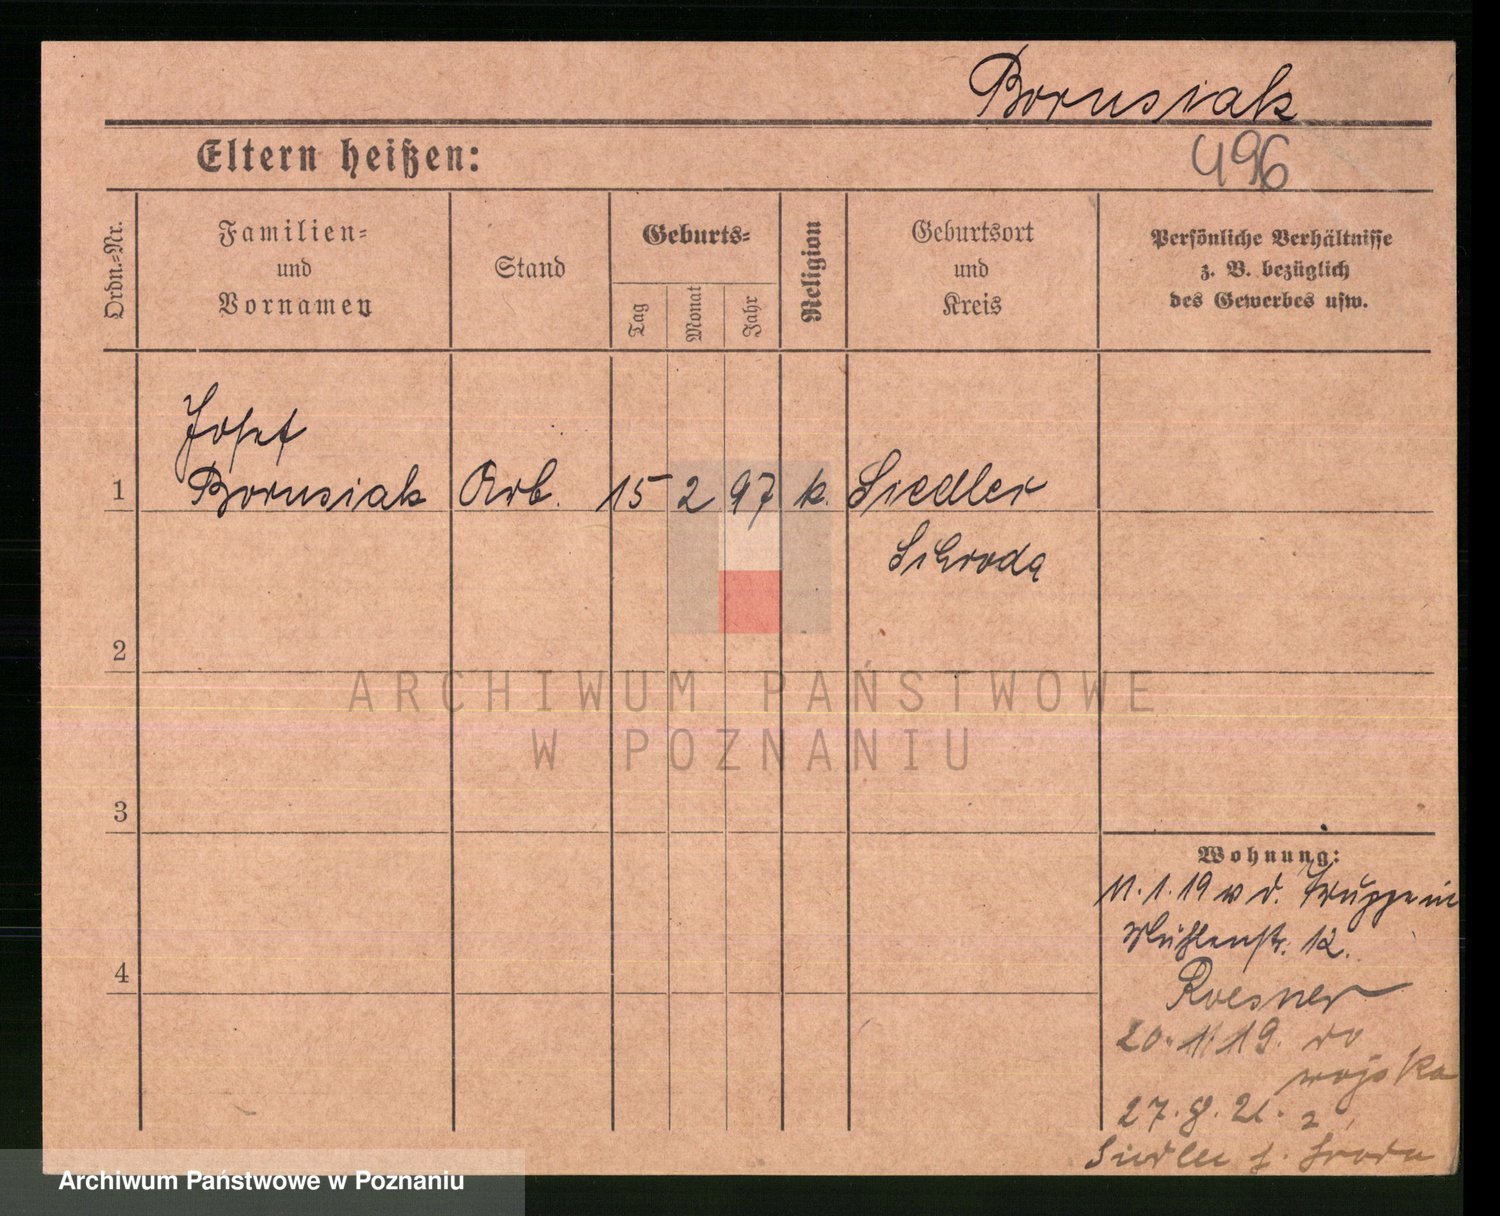 Borusiak
Eltern heißen:
496
Ordn.-Nr.
Familien-
und
Vornamen
Stand
Geburts-
Tag
Monat
Jahr
Religion
Geburtsort
und
Kreis
Persönliche Verhältnisse
z. B. bezüglich
des Gewerbes usw.
Josef
1 Borusiak Arb. 15 2 97 k. Siedler
Schroda
2
ARCHIWUM PAŃSTWOWE
W POZNANIU
3
4
Wohnung:
11.1.19 v d. Truppe in
Mühlenstr. 12.
Roesner
20.1.19. do
wojska
27.8.21. z
Siedlec p. Środa
Archiwum Państwowe w Poznaniu